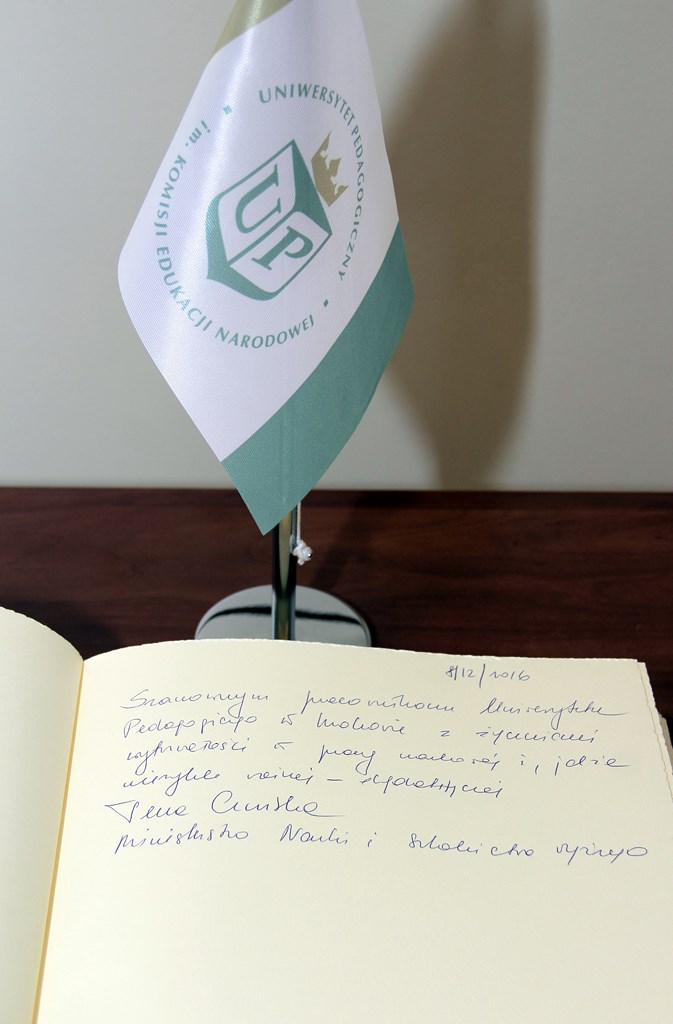 UNIWERSYTET PEDAGOGICZNY
im. KOMISJI EDUKACJI NARODOWEJ
UP
8/12/2016
Szanownym pracownikom Uniwersytetu
Pedagogicznego w Krakowie z życzeniami
wytrwałości w pracy naukowej i,
niezwykle ważnej – dydaktycznej
Ministerstwo Nauki i Szkolnictwa Wyższego